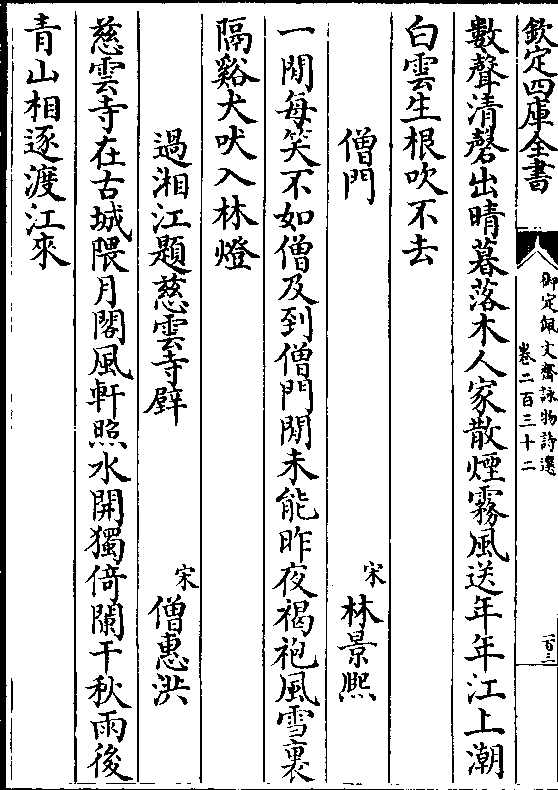 欽定四庫全書
御定佩文齋詠物詩選
卷二百三十二
一百三
數聲清磬出晴暮落木人家散煙霧風送年年江上潮
白雲生根吹不去
僧門
宋
林景熙
一閒每笑不如僧及到僧門閒未能昨夜褐袍風雪裏
隔谿犬吠入林燈
過湘江題慈雲寺壁
宋
僧惠洪
慈雲寺在古城隈月閣風軒照水開獨倚闌干秋雨後
青山相逐渡江來